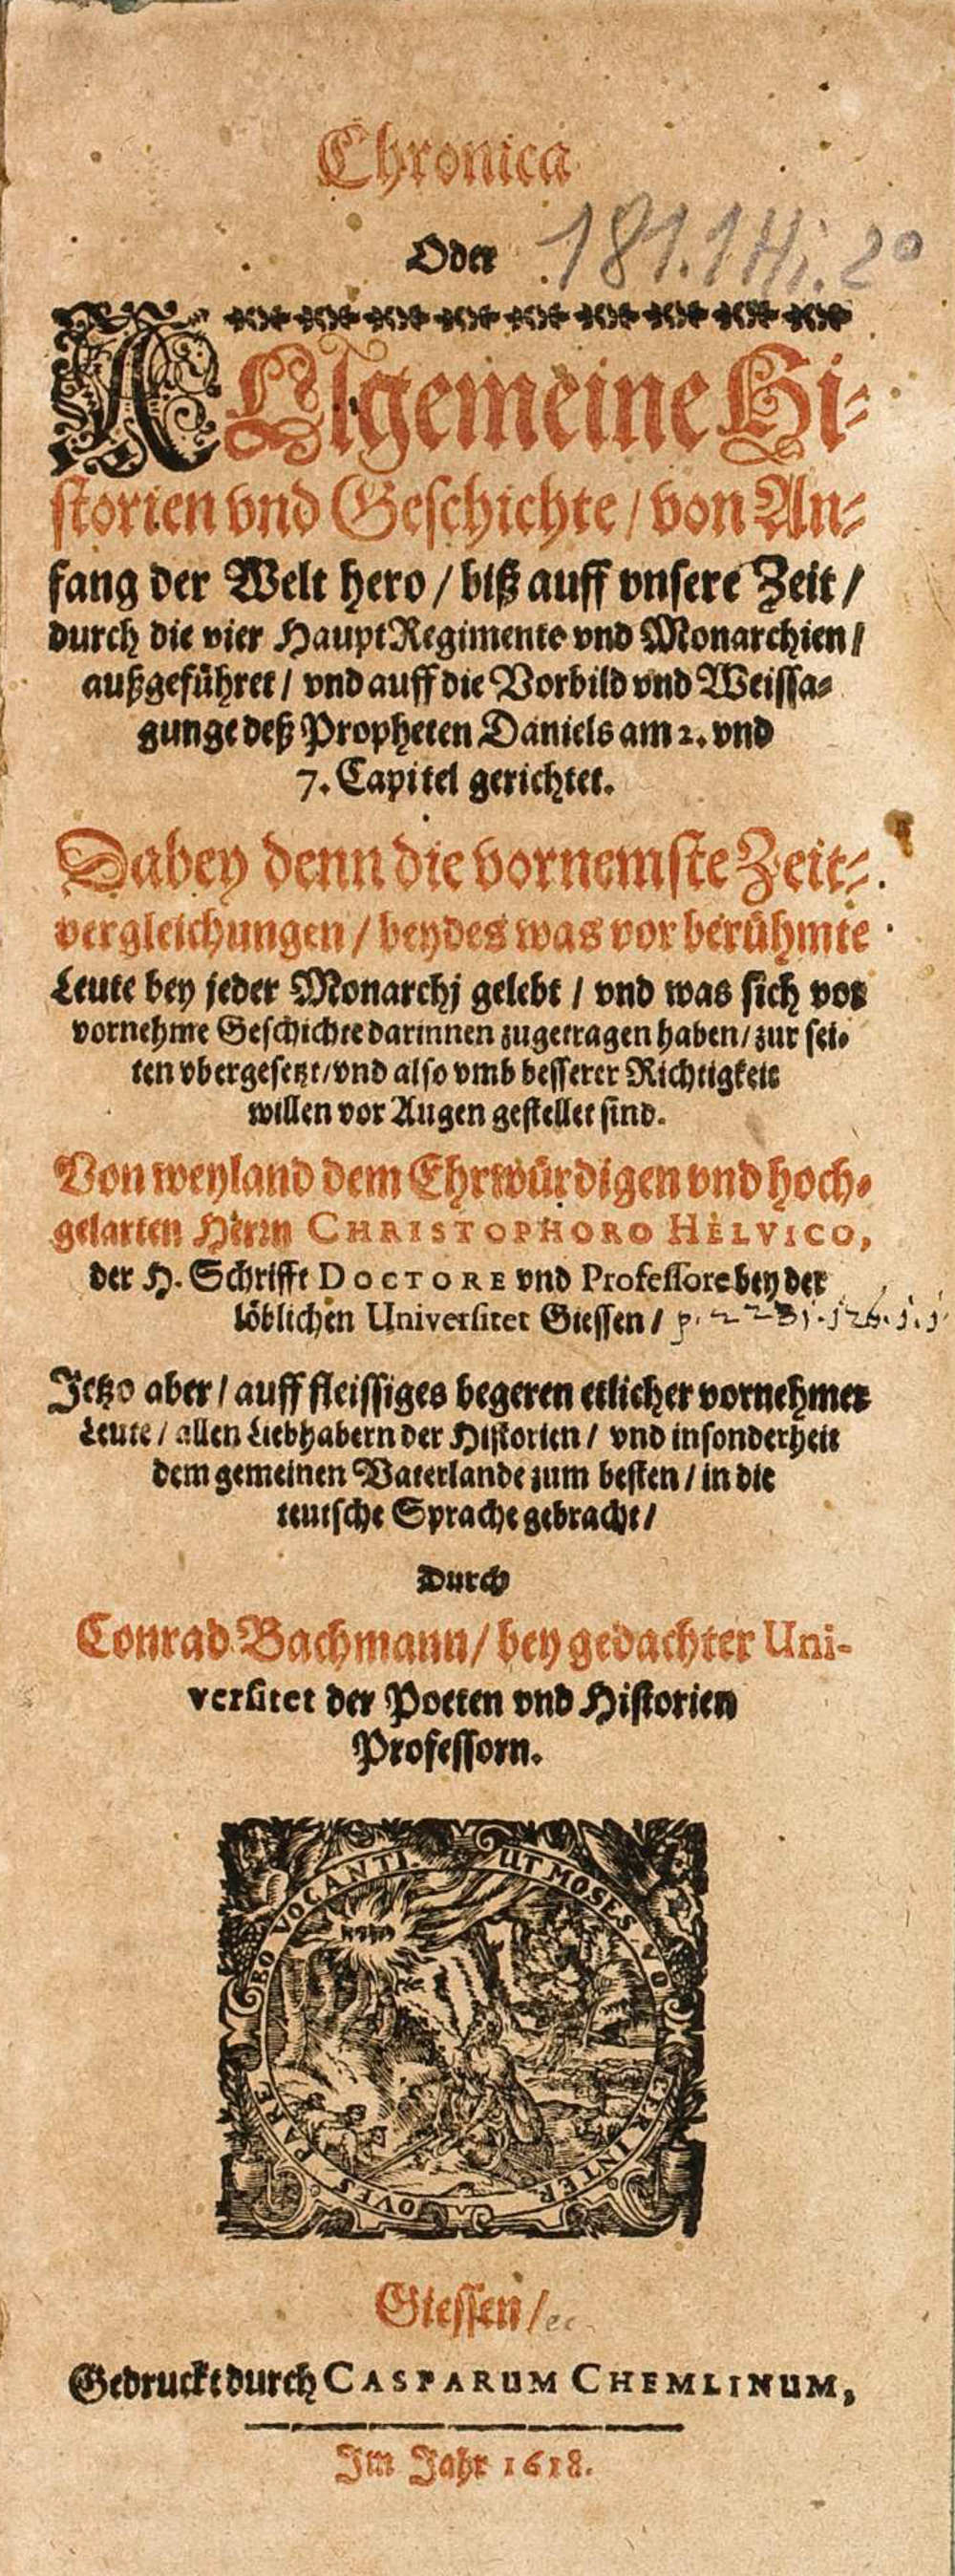 Chronica
Oder
181.1 Hi. 2°
ALlgemeine Hi-
storien vnd Geschichte / von An-
fang der Welt hero / biß auff vnsere Zeit /
durch die vier HauptRegimente vnd Monarchien /
außgeführet / vnd auff die Vorbild vnd Weissa-
gunge deß Propheten Daniels am 2. vnd
7. Capitel gerichtet.
Dabey denn die vornemste Zeit-
vergleichungen / beydes was vor berühmte
Leute bey jeder Monarchj gelebt / vnd was sich vor
vornehme Geschichte darinnen zugetragen haben / zur sei-
ten vbergesetzt / vnd also vmb besserer Richtigkeit
willen vor Augen gestellet sind.
Von weyland dem Ehrwürdigen vnd hoch-
gelarten Herrn CHRISTOPHORO HELVICO,
der H. Schrifft DOCTORE vnd Professore bey der
löblichen Universitet Giessen /
Jetzo aber / auff fleissiges begeren etlicher vornehmer
Leute / allen Liebhabern der Historien / vnd insonderheit
dem gemeinen Vaterlande zum besten / in die
teutsche Sprache gebracht /
Durch
Conrad Bachmann / bey gedachter Uni-
versitet der Poeten vnd Historien
Professorn.
UT MOSES VO TER INTER OVES PARE EO VOCANTI.
Giessen /
Gedruckt durch CASPARUM CHEMLINUM,
Im Jahr 1618.